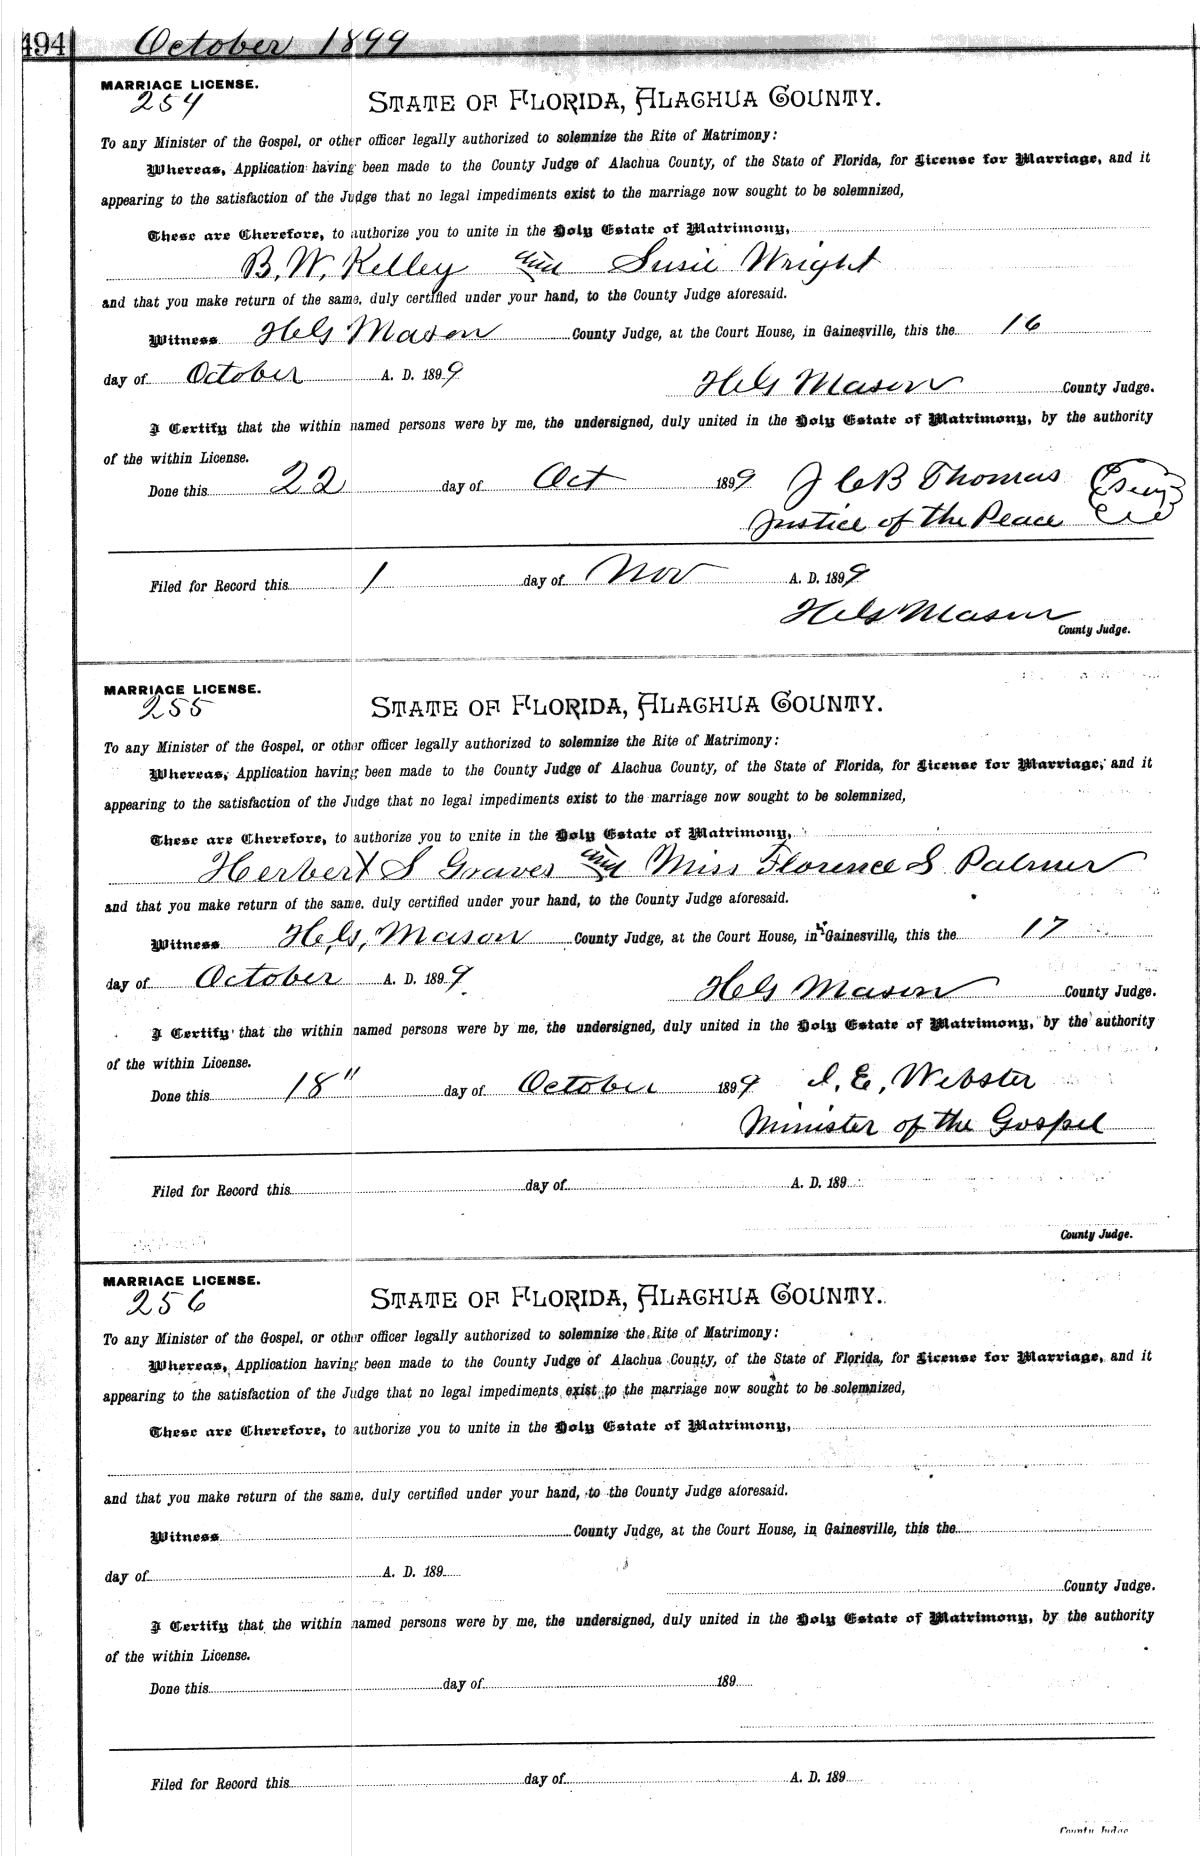 494 October 1899
MARRIAGE LICENSE.
254
STATE OF FLORIDA, ALACHUA COUNTY.
To any Minister of the Gospel, or other officer legally authorized to solemnize the Rite of Matrimony:
Whereas, Application having been made to the County Judge of Alachua County, of the State of Florida, for License for Marriage, and it
appearing to the satisfaction of the Judge that no legal impediments exist to the marriage now sought to be solemnized,
These are Therefore, to authorize you to unite in the Holy Estate of Matrimony,
B. W. Kelley and Susie Wright
and that you make return of the same, duly certified under your hand, to the County Judge aforesaid.
Witness H.G. Mason County Judge, at the Court House, in Gainesville, this the 16
day of October A. D. 1899
H.G. Mason County Judge.
I Certify that the within named persons were by me, the undersigned, duly united in the Holy Estate of Matrimony, by the authority
of the within License.
Done this 22 day of Oct 1899 J C B Thomas
Justice of the Peace
Filed for Record this 1 day of Nov A. D. 1899
H.G. Mason
County Judge.
MARRIAGE LICENSE.
255
STATE OF FLORIDA, ALACHUA COUNTY.
To any Minister of the Gospel, or other officer legally authorized to solemnize the Rite of Matrimony:
Whereas, Application having been made to the County Judge of Alachua County, of the State of Florida, for License for Marriage, and it
appearing to the satisfaction of the Judge that no legal impediments exist to the marriage now sought to be solemnized,
These are Therefore, to authorize you to unite in the Holy Estate of Matrimony,
Herbert S Graves and Miss Florence S Palmer
and that you make return of the same, duly certified under your hand, to the County Judge aforesaid.
Witness H.G. Mason County Judge, at the Court House, in Gainesville, this the 17
day of October A. D. 1899
H.G. Mason County Judge.
I Certify that the within named persons were by me, the undersigned, duly united in the Holy Estate of Matrimony, by the authority
of the within License.
Done this 18" day of October 1899 I. E. Webster
Minister of the Gospel
Filed for Record this day of A. D. 189
County Judge.
MARRIAGE LICENSE.
256
STATE OF FLORIDA, ALACHUA COUNTY.
To any Minister of the Gospel, or other officer legally authorized to solemnize the Rite of Matrimony:
Whereas, Application having been made to the County Judge of Alachua County, of the State of Florida, for License for Marriage, and it
appearing to the satisfaction of the Judge that no legal impediments exist to the marriage now sought to be solemnized,
These are Therefore, to authorize you to unite in the Holy Estate of Matrimony,
and that you make return of the same, duly certified under your hand, to the County Judge aforesaid.
Witness County Judge, at the Court House, in Gainesville, this the
day of A. D. 189
County Judge.
I Certify that the within named persons were by me, the undersigned, duly united in the Holy Estate of Matrimony, by the authority
of the within License.
Done this day of 189
Filed for Record this day of A. D. 189
County Judge